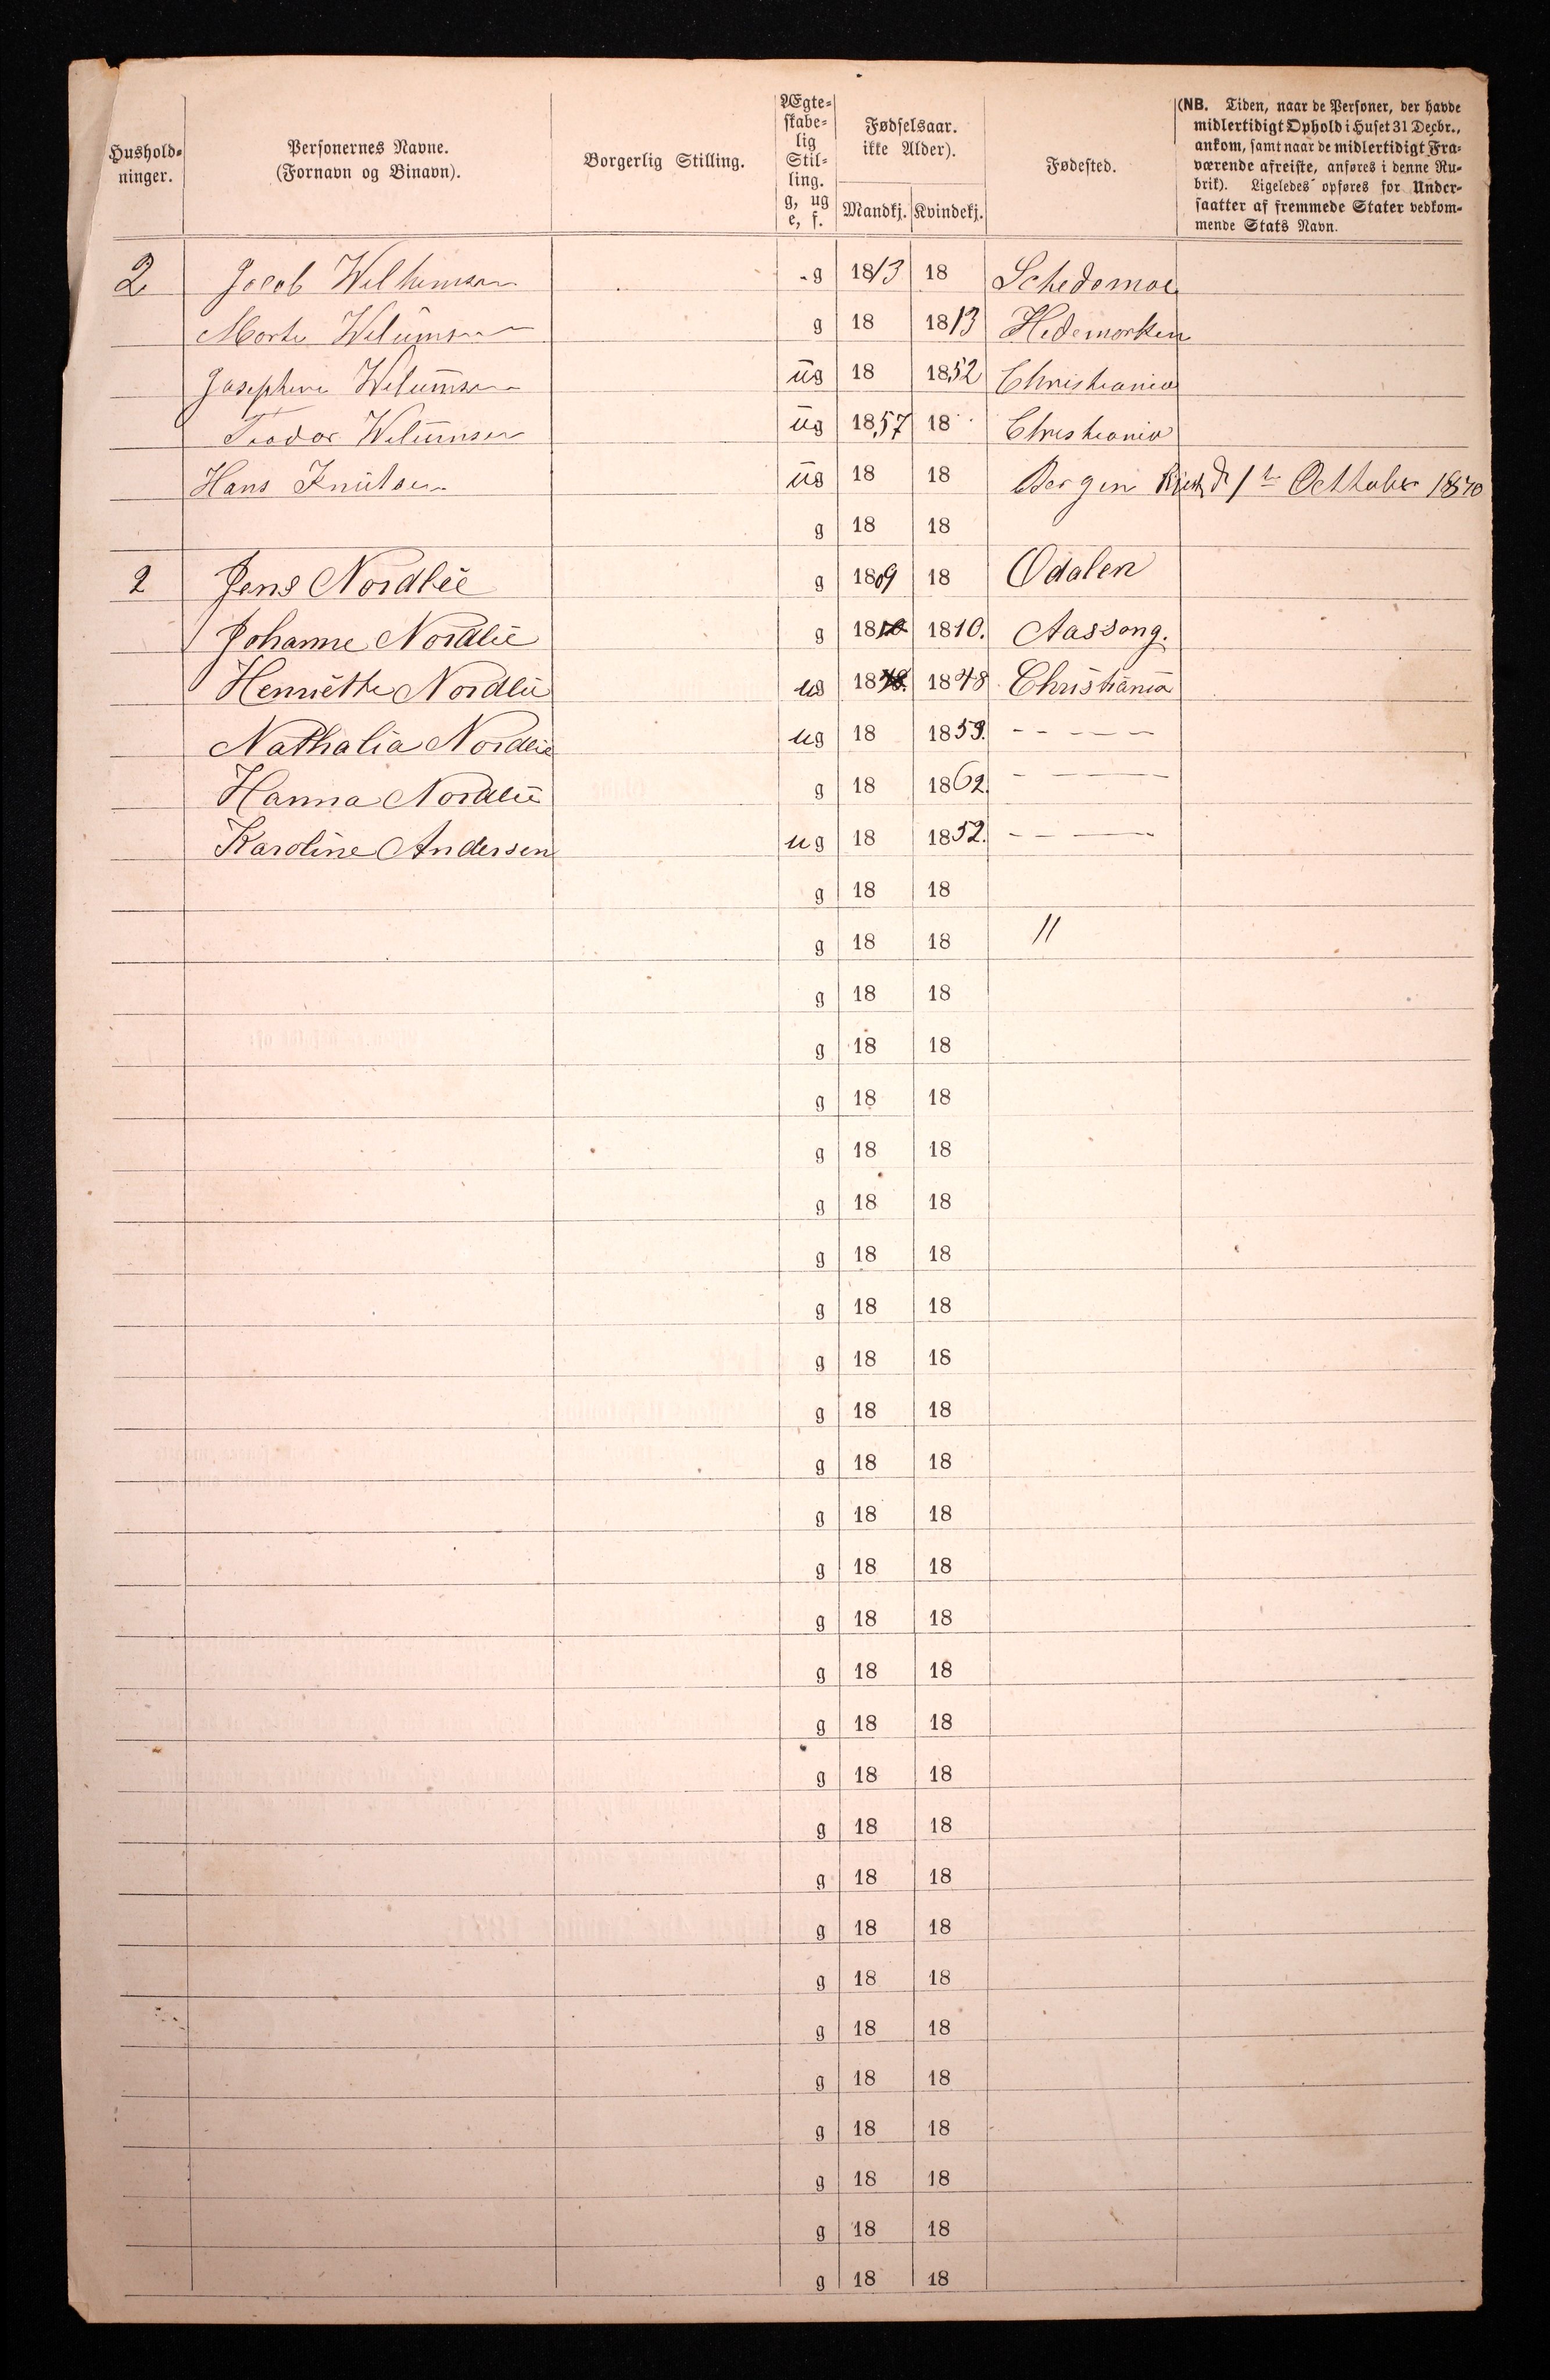 Hushold-
ninger.
Personernes Navne.
(Fornavn og Binavn).
Borgerlig Stilling.
Ægte-
skabe-
lig
Stil-
ling.
g, ug
e, f.
Fødselsaar.
ikke Alder).
Mandkj. Kvindekj.
Fødested.
(NB. Tiden, naar de Personer, der havde
midlertidigt Ophold i Huset 31 Decbr.,
ankom, samt naar de midlertidigt Fra-
værende afreiste, anføres i denne Ru-
brik). Ligeledes opføres for Under-
saatter af fremmede Stater vedkom-
mende Stats Navn.
2 Jacob Wilhemsen g 1813 18 Schedsmoe
Marte Wilumsen g 18 1813 Hedemarken
Josephine Wilumsen ug 18 1852 Christiania
Teodor Wilumsen ug 1857 18 Christiania
Hans Knutsen ug 18 18 Bergen Reist d 1te Octtober 1870
g 18 18
2 Jens Nordlie g 1809 18 Odalen
Johanne Nordlie g 1810 1810. Aassong.
Henriette Nordlie ug 1848. 1848 Christiania
Nathalia Nordlie ug 18 1859. - - - - -
Hanna Nordlie g 18 1862. - - -
Karoline Andersen ug 18 1852. - - -
g 18 18
g 18 18 "
g 18 18
g 18 18
g 18 18
g 18 18
g 18 18
g 18 18
g 18 18
g 18 18
g 18 18
g 18 18
g 18 18
g 18 18
g 18 18
g 18 18
g 18 18
g 18 18
g 18 18
g 18 18
g 18 18
g 18 18
g 18 18
g 18 18
g 18 18
g 18 18
g 18 18
g 18 18